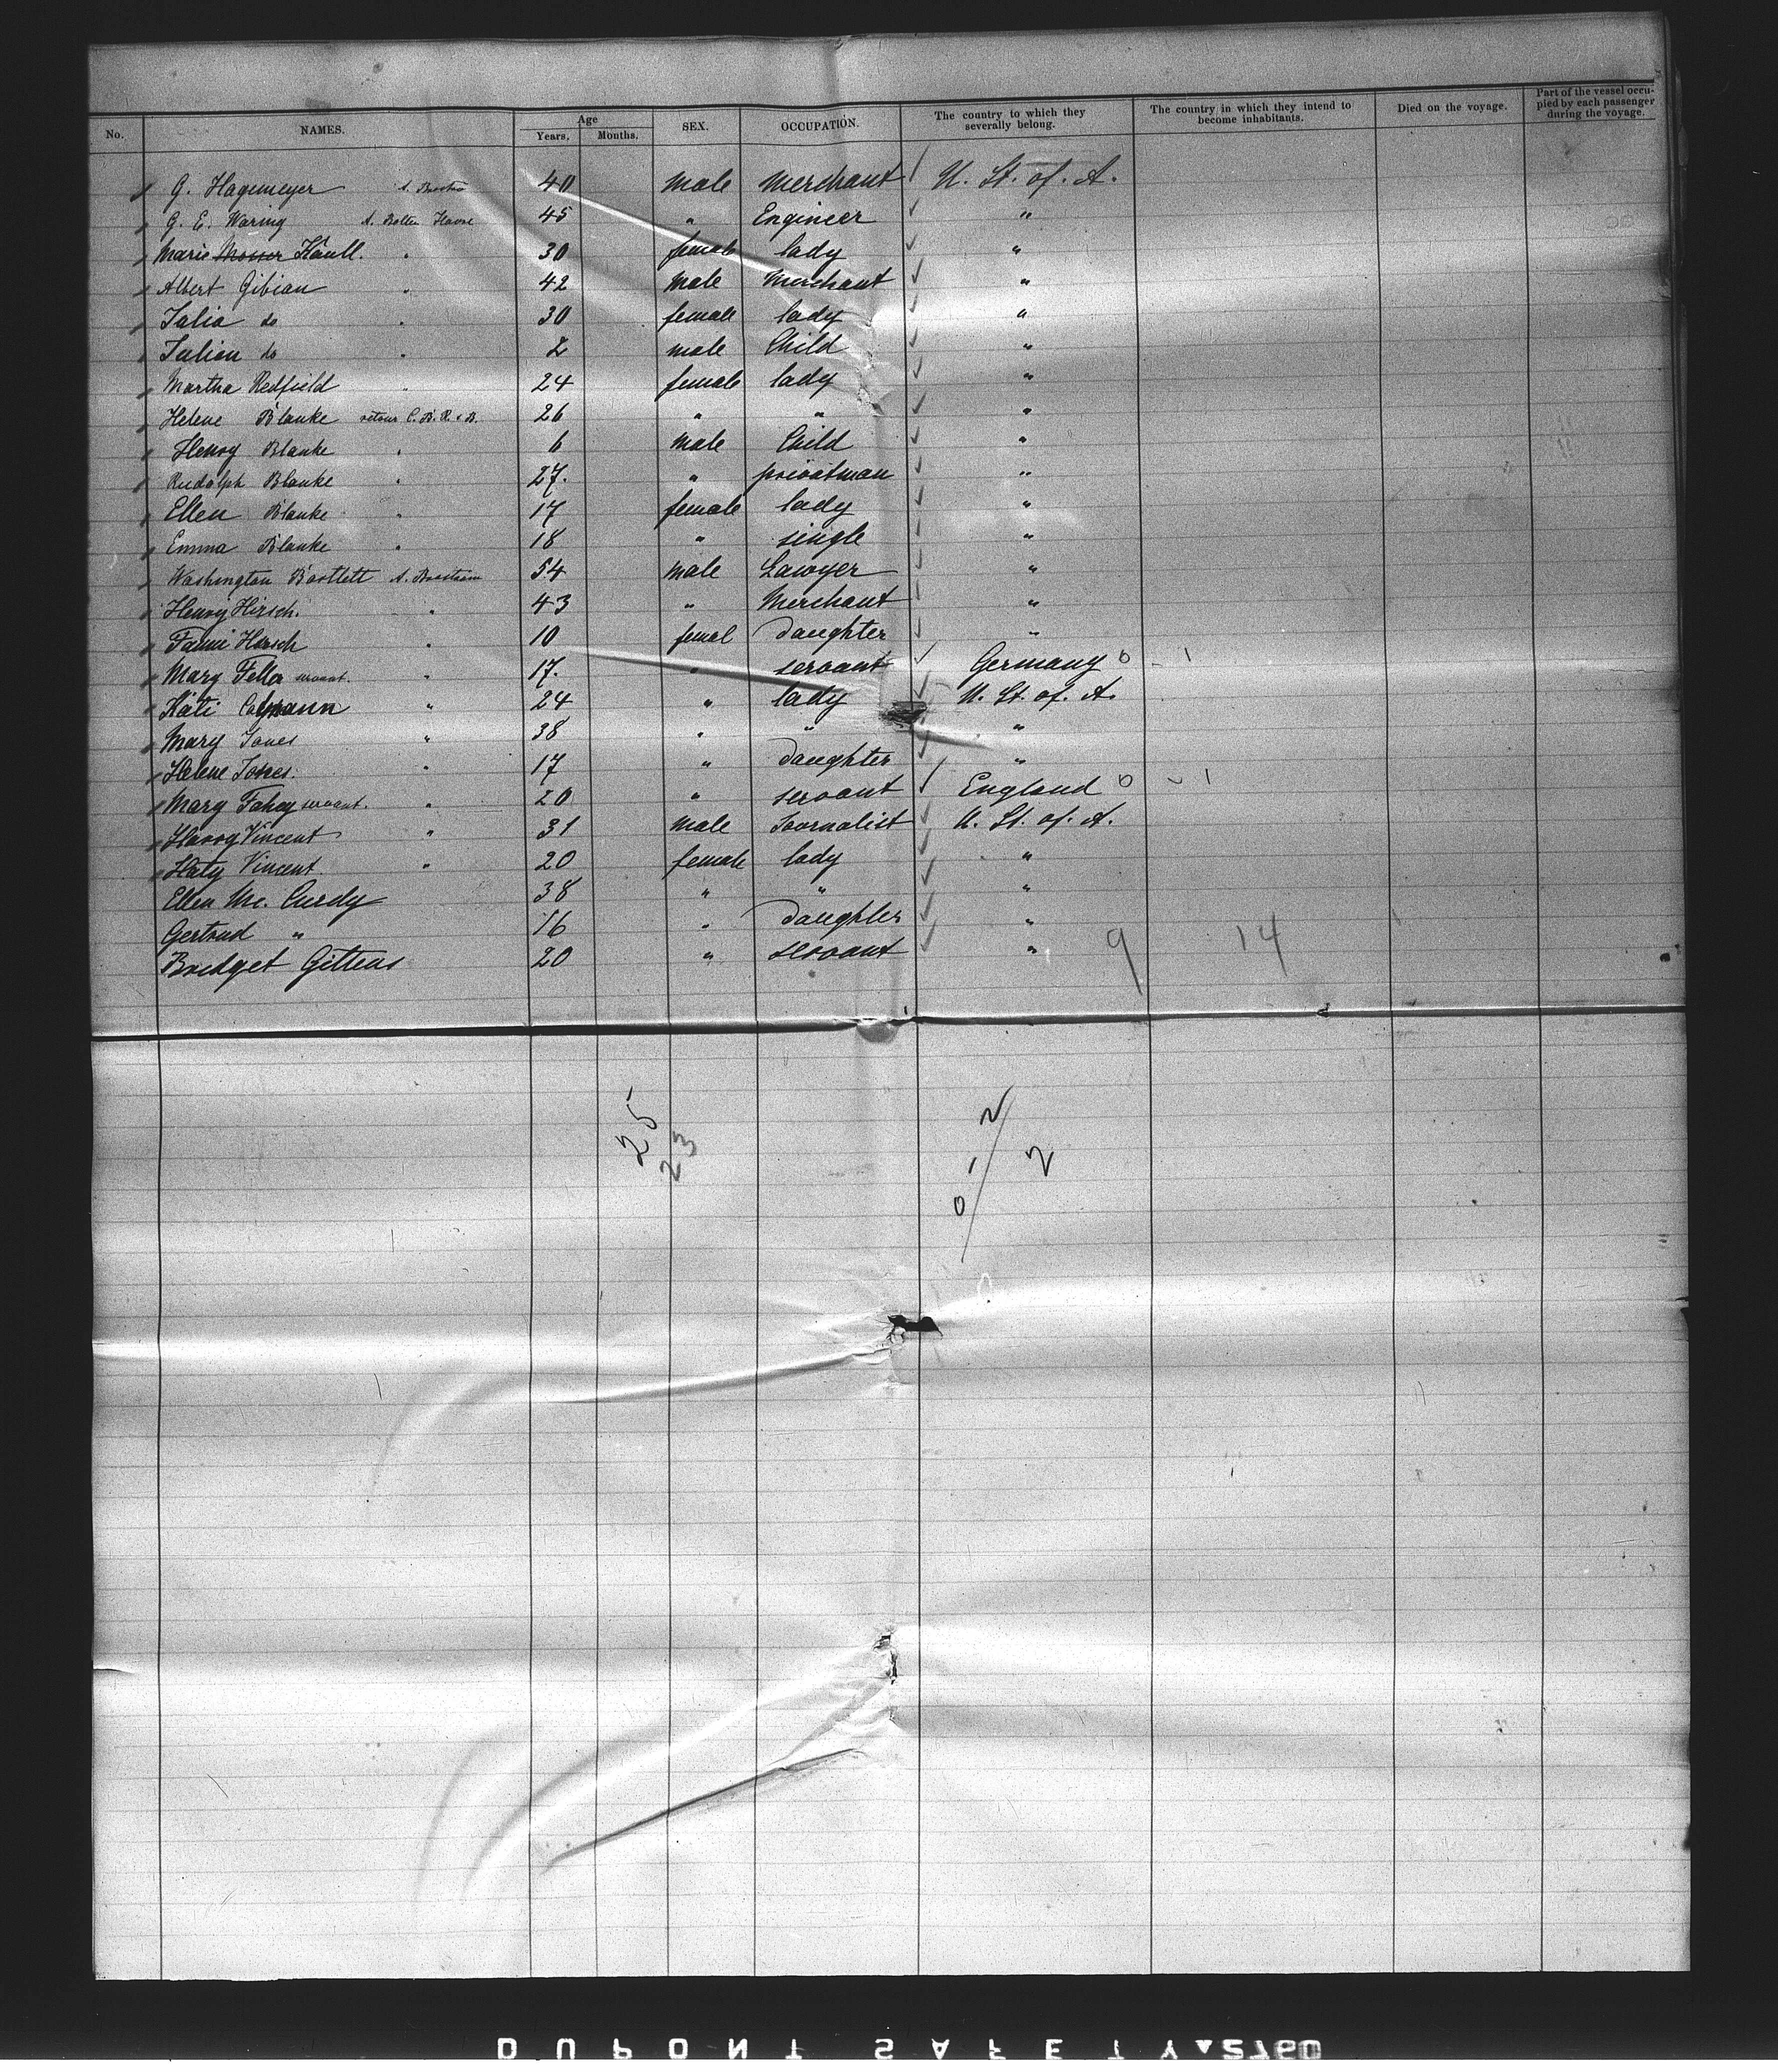 No. NAMES. Age Years. Months. SEX. OCCUPATION. The country to which they severally belong. The country in which they intend to become inhabitants. Died on the voyage. Part of the vessel occupied by each passenger during the voyage.
G. Hagemeyer 40 male Merchant U. St. of. A.
G. E. Waring 45 " Engineer "
Marie Kaull. " 30 female lady "
Albert Gibian " 42 male Merchant "
Julia do " 30 female lady "
Julien do " 2 male Child "
Martha Redfield " 24 female lady "
Helene Blanke retour 26 " " "
Henry Blanke " 6 male Child "
Rudolph Blanke " 27. " privatman "
Ellen Blanke " 17 female lady "
Emma Blanke " 18 " single "
Washington Bartlett 54 male Lawyer "
Henry Hirsch. " 43 " Merchant "
Fanni Hirsch " 10 femal daughter "
Mary servant. " 17. " servant Germany 0 - 1
Käti " 24 " lady U. St. of. A.
Mary Jones " 38 " " "
Helene Jones. " 17 " daughter "
Mary Fahey servant. " 20 " servant England 0 - 1
Harry Vincent " 31 male Journalist U. St. of. A.
Katy Vincent. " 20 female lady "
Ellen Mc. Curdy 38 " " "
Gertrud " 16 " daughter "
Bridget Gittens 20 " servant " 9 14
25
23
0 - 2
2
DUPONT SAFETY 2760